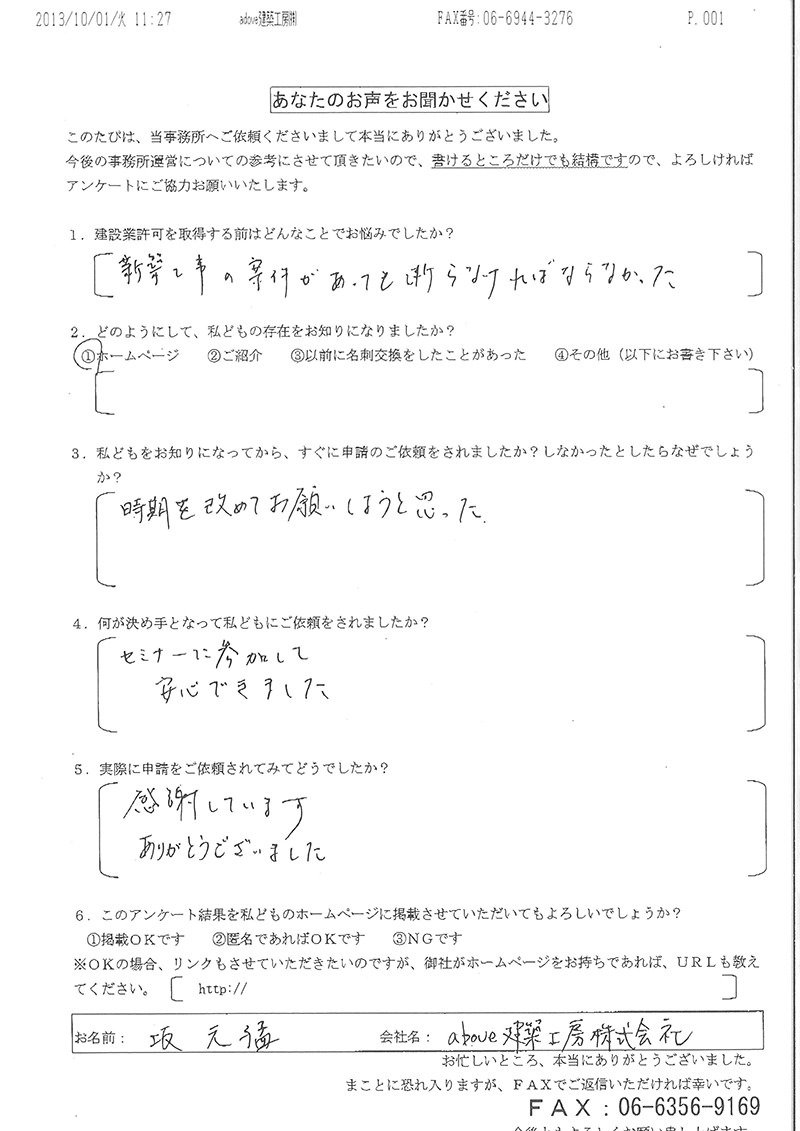 2013/10/01/火 11:27 adove建築工房㈱ FAX番号:06-6944-3276 P.001
あなたのお声をお聞かせください
このたびは、当事務所へご依頼くださいまして本当にありがとうございました。
今後の事務所運営についての参考にさせて頂きたいので、書けるところだけでも結構ですので、よろしければ
アンケートにご協力お願いいたします。
１．建設業許可を取得する前はどんなことでお悩みでしたか？
新築工事の案件があっても断らなければならなかった
２．どのようにして、私どもの存在をお知りになりましたか？
①ホームページ ②ご紹介 ③以前に名刺交換をしたことがあった ④その他（以下にお書き下さい）
３．私どもをお知りになってから、すぐに申請のご依頼をされましたか？しなかったとしたらなぜでしょう
か？
時期を改めてお願いしようと思った.
４．何が決め手となって私どもにご依頼をされましたか？
セミナーに参加して
安心できました
５．実際に申請をご依頼されてみてどうでしたか？
感謝しています
ありがとうございました
６．このアンケート結果を私どものホームページに掲載させていただいてもよろしいでしょうか？
①掲載ＯＫです ②匿名であればＯＫです ③ＮＧです
※ＯＫの場合、リンクもさせていただきたいのですが、御社がホームページをお持ちであれば、ＵＲＬも教え
てください。 http://
お名前： 坂元 猛 会社名： above建築工房株式会社
お忙しいところ、本当にありがとうございました。
まことに恐れ入りますが、ＦＡＸでご返信いただければ幸いです。
ＦＡＸ：06-6356-9169